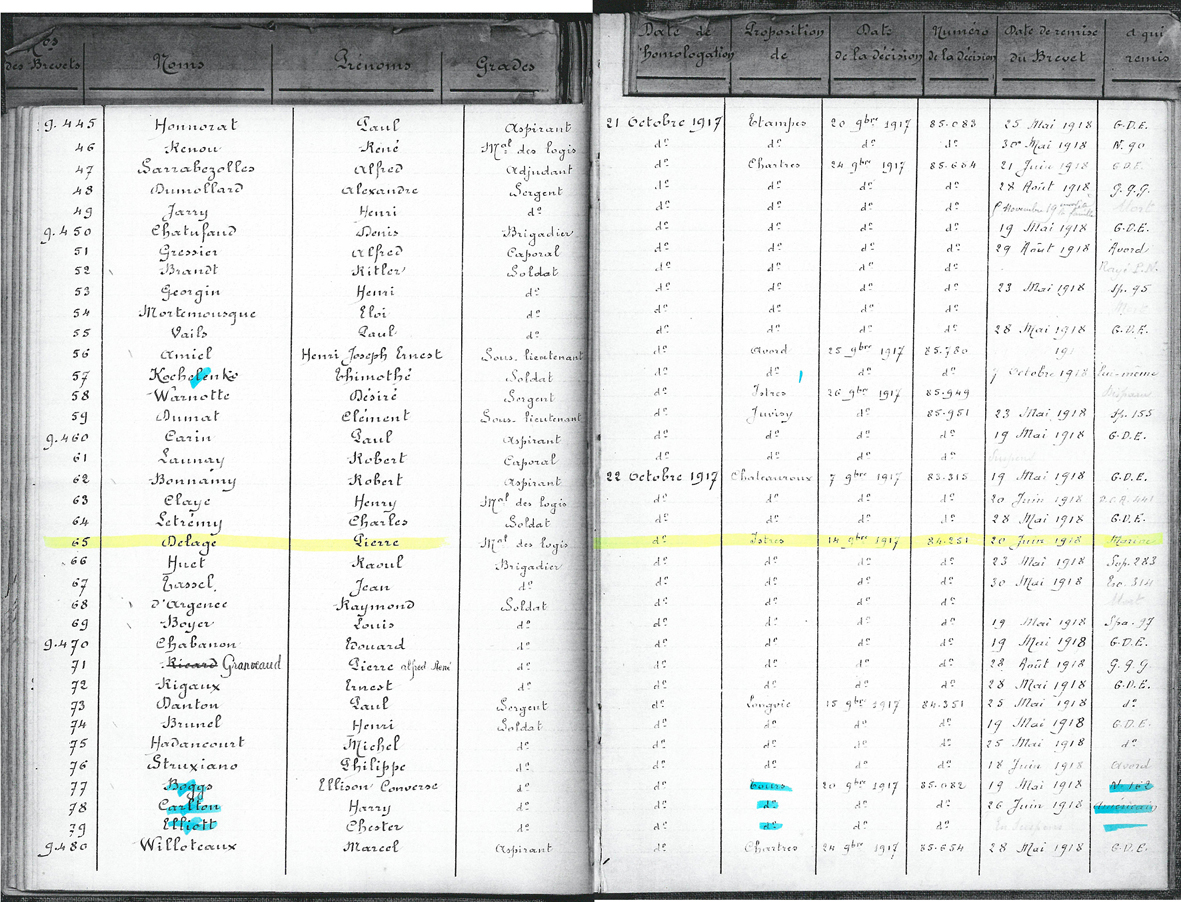 Nos des Brevets Noms Prénoms Grades Date de l'homologation Proposition de Date de la décision Numéro de la décision Date de remise du Brevet A qui remis
9.445 Honnorat Paul Aspirant 21 Octobre 1917 Etampes 20 9bre 1917 85.083 25 Mai 1918 G.D.E.
46 Renou René Mal des logis do do do do 30 Mai 1918 N. 90
47 Sarrabezolles Alfred Adjudant do Chartres 24 9bre 1917 85.654 21 Juin 1918 G.D.E.
48 Dumollard Alexandre Sergent do do do do 28 Août 1918 G.g.G.
49 Jarry Henri do do do do do Novembre 19 Mort
9.450 Chatufaud Denis Brigadier do do do do 19 Mai 1918 G.D.E.
51 Gressier Alfred Caporal do do do do 29 Août 1918 Avord
52 Brandt Ritler Soldat do do do do
53 Georgin Henri do do do do do 23 Mai 1918 Sp. 95
54 Mortemousque Eloi do do do do do Mort
55 Vails Paul do do do do do 28 Mai 1918 G.D.E.
56 Amiel Henri Joseph Ernest Sous. lieutenant do Avord 25 9bre 1917 85.780 19
57 Kochelenko Thimothé Soldat do do do do 7 Octobre 1918 lui-même
58 Warnotte Désiré Sergent do Istres 26 9bre 1917 85.949
59 Dumat Clément Sous. lieutenant do Juvisy do 85.951 23 Mai 1918 Sp. 155
9.460 Carin Paul Aspirant do do do do 19 Mai 1918 G.D.E.
61 Launay Robert Caporal do do do do
62 Bonnamy Robert Aspirant 22 Octobre 1917 Chateauroux 7 9bre 1917 83.315 19 Mai 1918 G.D.E.
63 Claye Henry Mal des logis do do do do 20 Juin 1918
64 Letrémy Charles Soldat do do do do 28 Mai 1918 G.D.E.
65 Delage Pierre Mal des logis do Istres 14 9bre 1917 84.251 20 Juin 1918 Marine
66 Huet Raoul Brigadier do do do do 23 Mai 1918 Sop. 283
67 Tassel Jean do do do do do 30 Mai 1918 Esc. 314
68 d'Argence Raymond Soldat do do do do Mort
69 Boyer Louis do do do do do 19 Mai 1918 Spa. 97
9.470 Chabanon Edouard do do do do do 19 Mai 1918 G.D.E.
71 Ricard Granveaud Pierre alfred René do do do do do 28 Août 1918 G.g.G.
72 Rigaux Ernest do do do do do 28 Mai 1918 G.D.E.
73 Danton Paul Sergent do Longvic 15 9bre 1917 84.351 25 Mai 1918 do
74 Brunel Henri Soldat do do do do 19 Mai 1918 G.D.E.
75 Hadancourt Michel do do do do do 25 Mai 1918 do
76 Struxiano Philippe do do do do do 18 Juin 1918 Avord
77 Boggs Ellison Converse do do Tours 20 9bre 1917 85.082 19 Mai 1918 N. 162
78 Carlton Harry do do do do do 26 Juin 1918 américain
79 Elliott Chester do do do do do
9.480 Willoteaux Marcel Aspirant do Chartres 24 9bre 1917 85.654 28 Mai 1918 G.D.E.